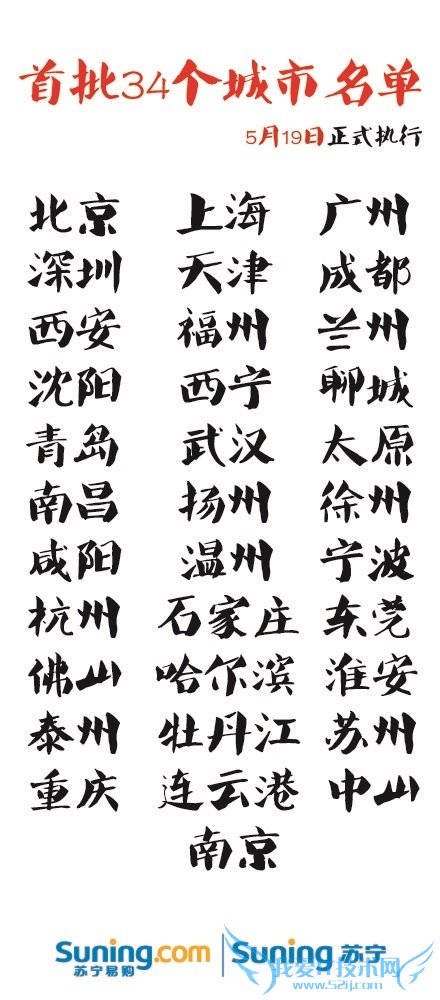 首批34个城市名单
5月19日正式执行
北京 上海 广州
深圳 天津 成都
西安 福州 兰州
沈阳 西宁 聊城
青岛 武汉 太原
南昌 扬州 徐州
咸阳 温州 宁波
杭州 石家庄 东莞
佛山 哈尔滨 淮安
泰州 牡丹江 苏州
重庆 连云港 中山
南京
Suning.com Suning 苏宁
苏宁易购
我爱IT技术网
www.52ij.com